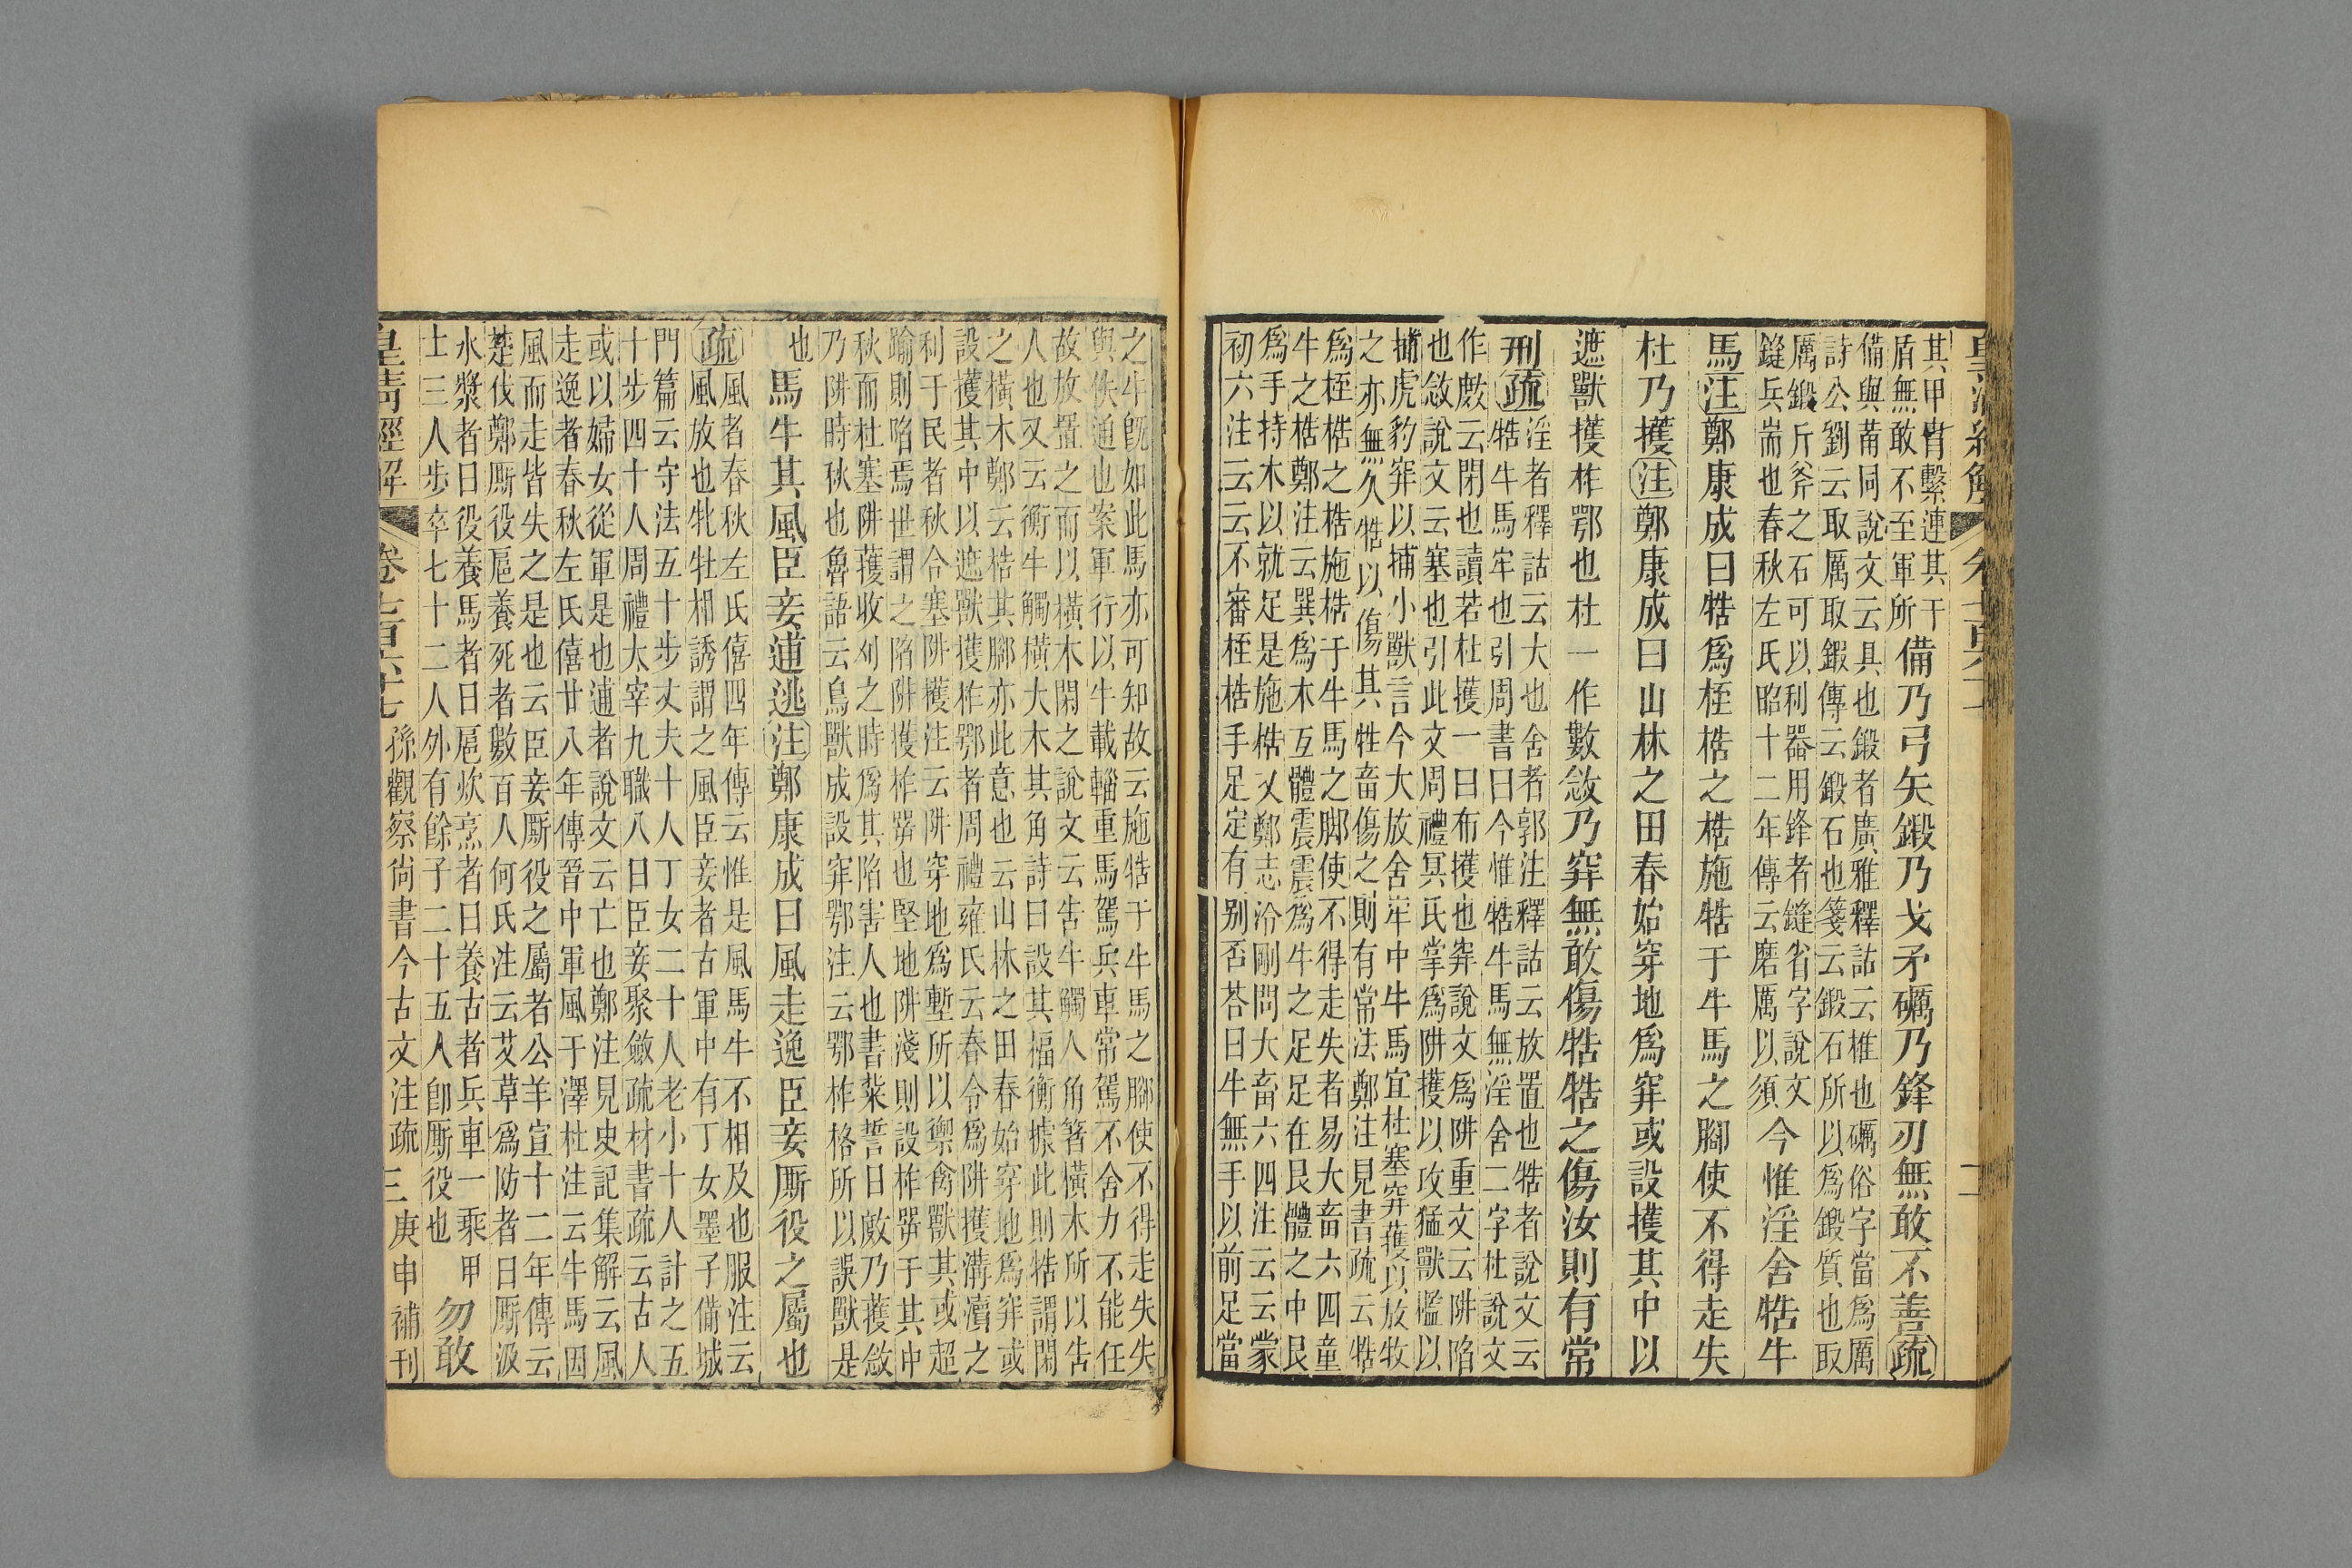 其甲冑繫連其干
盾無敢不至軍所
備乃弓矢鍛乃戈矛礪乃鋒刃無敢不善疏
備與葡同說文云具也鍛者廣雅釋詁云椎也礪俗字當爲厲
詩公劉云取厲取鍛傳云鍛石也箋云鍛石所以爲鍛質也取
厲鍛斤斧之石可以利器用鋒者縫省字說文
鏠兵耑也春秋左氏昭十二年傳云磨厲以須
今惟淫舍牿牛
馬注鄭康成曰牿爲桎梏之梏施牿于牛馬之腳使不得走失
杜乃擭注鄭康成曰山林之田春始穿地爲穽或設擭其中以
遮獸擭柞鄂也杜一作斁敜乃穽無敢傷牿牿之傷汝則有常
刑疏
淫者釋詁云大也舍者郭注釋詁云放置也牿者說文云
牿牛馬牢也引周書曰今惟牿牛馬無淫舍二字杜說文
作斁云閉也讀若杜擭一曰布擭也穽說文爲阱重文云阱陷
也敜說文云塞也引此文周禮冥氏掌爲阱擭以攻猛獸檻以
捕虎豹穽以捕小獸言今大放舍牢中牛馬宜杜塞穽擭以放牧
之亦無久牿以傷其牲畜傷之則有常法鄭注見書疏云牿
爲桎梏之梏施梏于牛馬之脚使不得走失者易大畜六四童
牛之梏鄭注云巽爲木互體震震爲牛之足足在艮體之中艮
爲手持木以就足是施梏又鄭志泠剛問大畜六四注云云蒙
初六注云云不審桎梏手足定有别否荅曰牛無手以前足當
之牛旣如此馬亦可知故云施牿于牛馬之腳使不得走失失
與佚通也案軍行以牛載輜重馬駕兵車常駕不舍力不能任
故放置之而以橫木閑之說文云告牛觸人角箸橫木所以告
人也又云衡牛觸橫大木其角詩曰設其楅衡據此則牿謂閑
之橫木鄭云梏其腳亦此意也云山林之田春始穿地爲穽或
設擭其中以遮獸擭柞鄂者周禮雍氏云春令爲阱擭溝瀆之
利于民者秋令塞阱擭注云阱穿地爲塹所以禦禽獸其或超
踰則陷焉世謂之陷阱擭柞㗬也堅地阱淺則設柞㗬于其中
秋而杜塞阱擭收刈之時爲其陷害人也書粊誓曰敿乃擭敜
乃阱時秋也魯語云鳥獸成設穽鄂注云鄂柞格所以誤獸是
也
馬牛其風臣妾逋逃注鄭康成曰風走逸臣妾廝役之屬也
疏
風者春秋左氏僖四年傳云惟是風馬牛不相及也服注云
風放也牝牡相誘謂之風臣妾者古軍中有丁女墨子備城
門篇云守法五十步丈夫十人丁女二十人老小十人計之五
十步四十人周禮大宰九職八曰臣妾聚斂疏材書疏云古人
或以婦女從軍是也逋者說文云亡也鄭注見史記集解云風
走逸者春秋左氏僖廿八年傳晉中軍風于澤杜注云牛馬因
風而走皆失之是也云臣妾廝役之屬者公羊宣十二年傳云
楚伐鄭廝役扈養死者數百人何氏注云艾草爲防者曰廝汲
水漿者曰役養馬者曰扈炊烹者曰養古者兵車一乘甲
士三人步卒七十二人外有餘子二十五人卽廝役也
勿敢
皇清經解 卷七百六十七 孫觀察尙書今古文注疏 三 庚申補刊